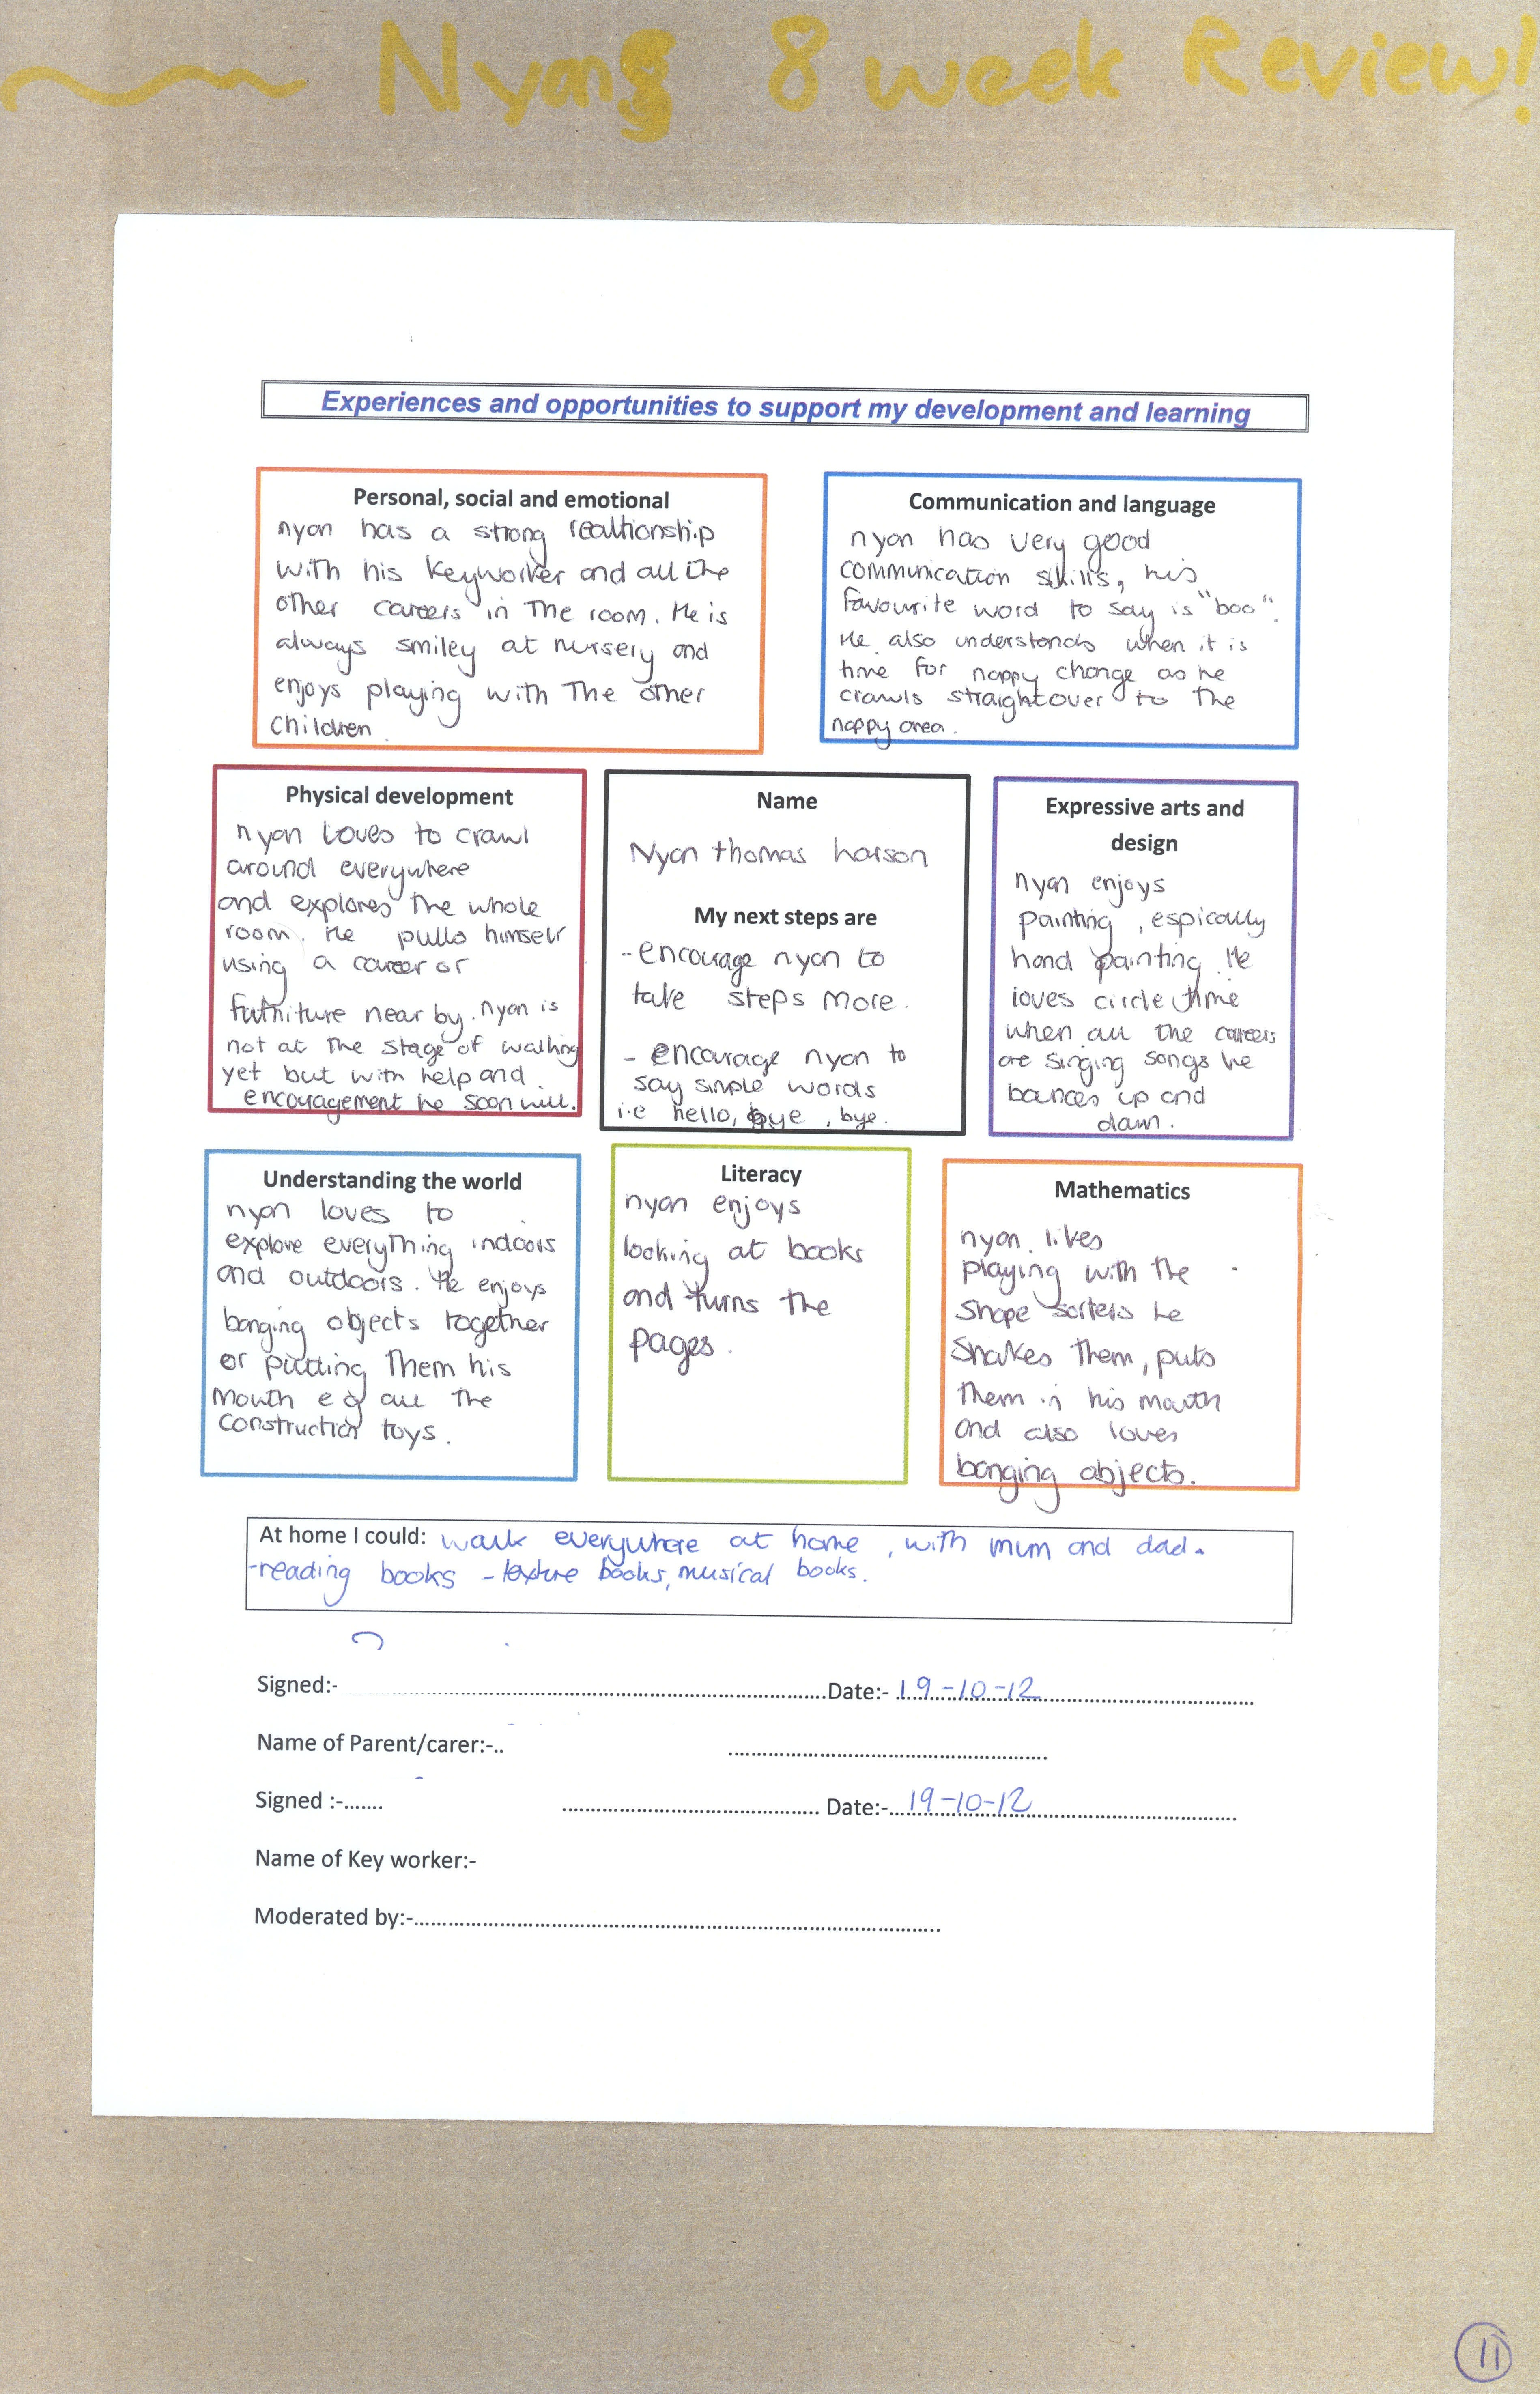 Nyons 8 week Review!
Experiences and opportunities to support my development and learning
Personal, social and emotional
nyon has a strong realtionship
with his keyworker and all the
other careers in the room. He is
always smiley at nursery and
enjoys playing with the other
children.
Communication and language
nyon has very good
communication skills, his
favourite word to say is "boo".
He also understands when it is
time for nappy change as he
crawls straight over to the
nappy area.
Physical development
nyon loves to crawl
around everywhere
and explores the whole
room. He pulls himself
using a career or
furniture near by. nyon is
not at the stage of walking
yet but with help and
encouragement he soon will.
Name
Nyon thomas
My next steps are
- encourage nyon to
take steps more.
- encourage nyon to
say simple words
i.e hello, bye, bye.
Expressive arts and
design
nyon enjoys
painting, espically
hand painting. He
loves circle time
when all the careers
are singing songs he
bounces up and
down.
Understanding the world
nyon loves to
explore everything indoors
and outdoors. He enjoys
banging objects together
or putting them his
mouth e g all the
construction toys.
Literacy
nyon enjoys
looking at books
and turns the
pages.
Mathematics
nyon likes
playing with the
shape sorters he
shakes them, puts
them in his mouth
and also loves
banging objects.
At home I could: walk everywhere at home, with mum and dad.
-reading books - texture books, musical books.
Signed:- Date:- 19-10-12
Name of Parent/carer:-..
Signed :-....... Date:- 19-10-12
Name of Key worker:-
Moderated by:-
11